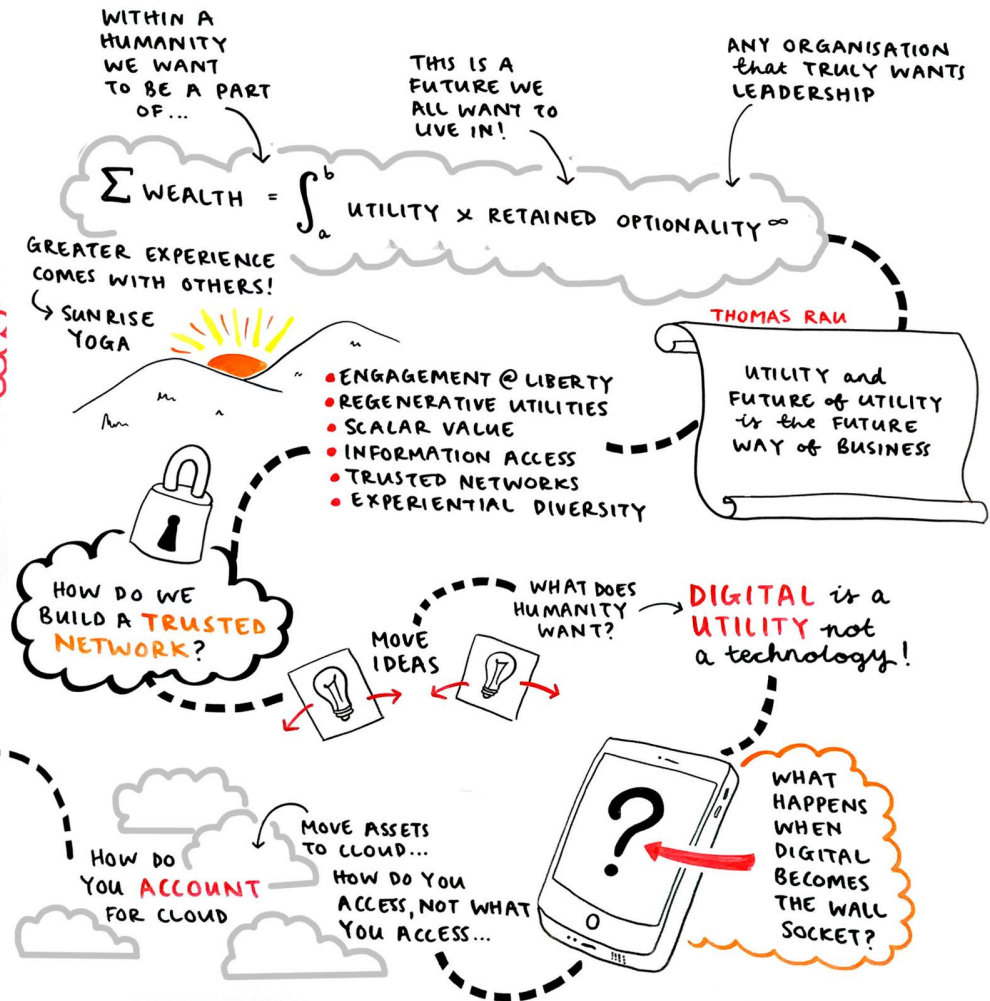 WITHIN A
HUMANITY
WE WANT
TO BE A PART
OF...
THIS IS A
FUTURE WE
ALL WANT TO
LIVE IN!
ANY ORGANISATION
that TRULY WANTS
LEADERSHIP
Σ WEALTH = ∫ₐᵇ UTILITY x RETAINED OPTIONALITY ∞
GREATER EXPERIENCE
COMES WITH OTHERS!
SUNRISE
YOGA
THOMAS RAU
UTILITY and
FUTURE of UTILITY
is the FUTURE
WAY of BUSINESS
• ENGAGEMENT @ LIBERTY
• REGENERATIVE UTILITIES
• SCALAR VALUE
• INFORMATION ACCESS
• TRUSTED NETWORKS
• EXPERIENTIAL DIVERSITY
HOW DO WE
BUILD A TRUSTED
NETWORK?
MOVE
IDEAS
WHAT DOES
HUMANITY
WANT?
DIGITAL is a
UTILITY not
a technology!
WHAT
HAPPENS
WHEN
DIGITAL
BECOMES
THE WALL
SOCKET?
?
MOVE ASSETS
TO CLOUD...
HOW DO YOU
ACCESS, NOT WHAT
YOU ACCESS...
HOW DO
YOU ACCOUNT
FOR CLOUD